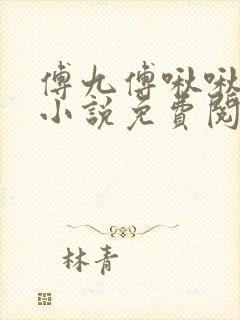 傅九傅啾啾
小說免費閱
林青